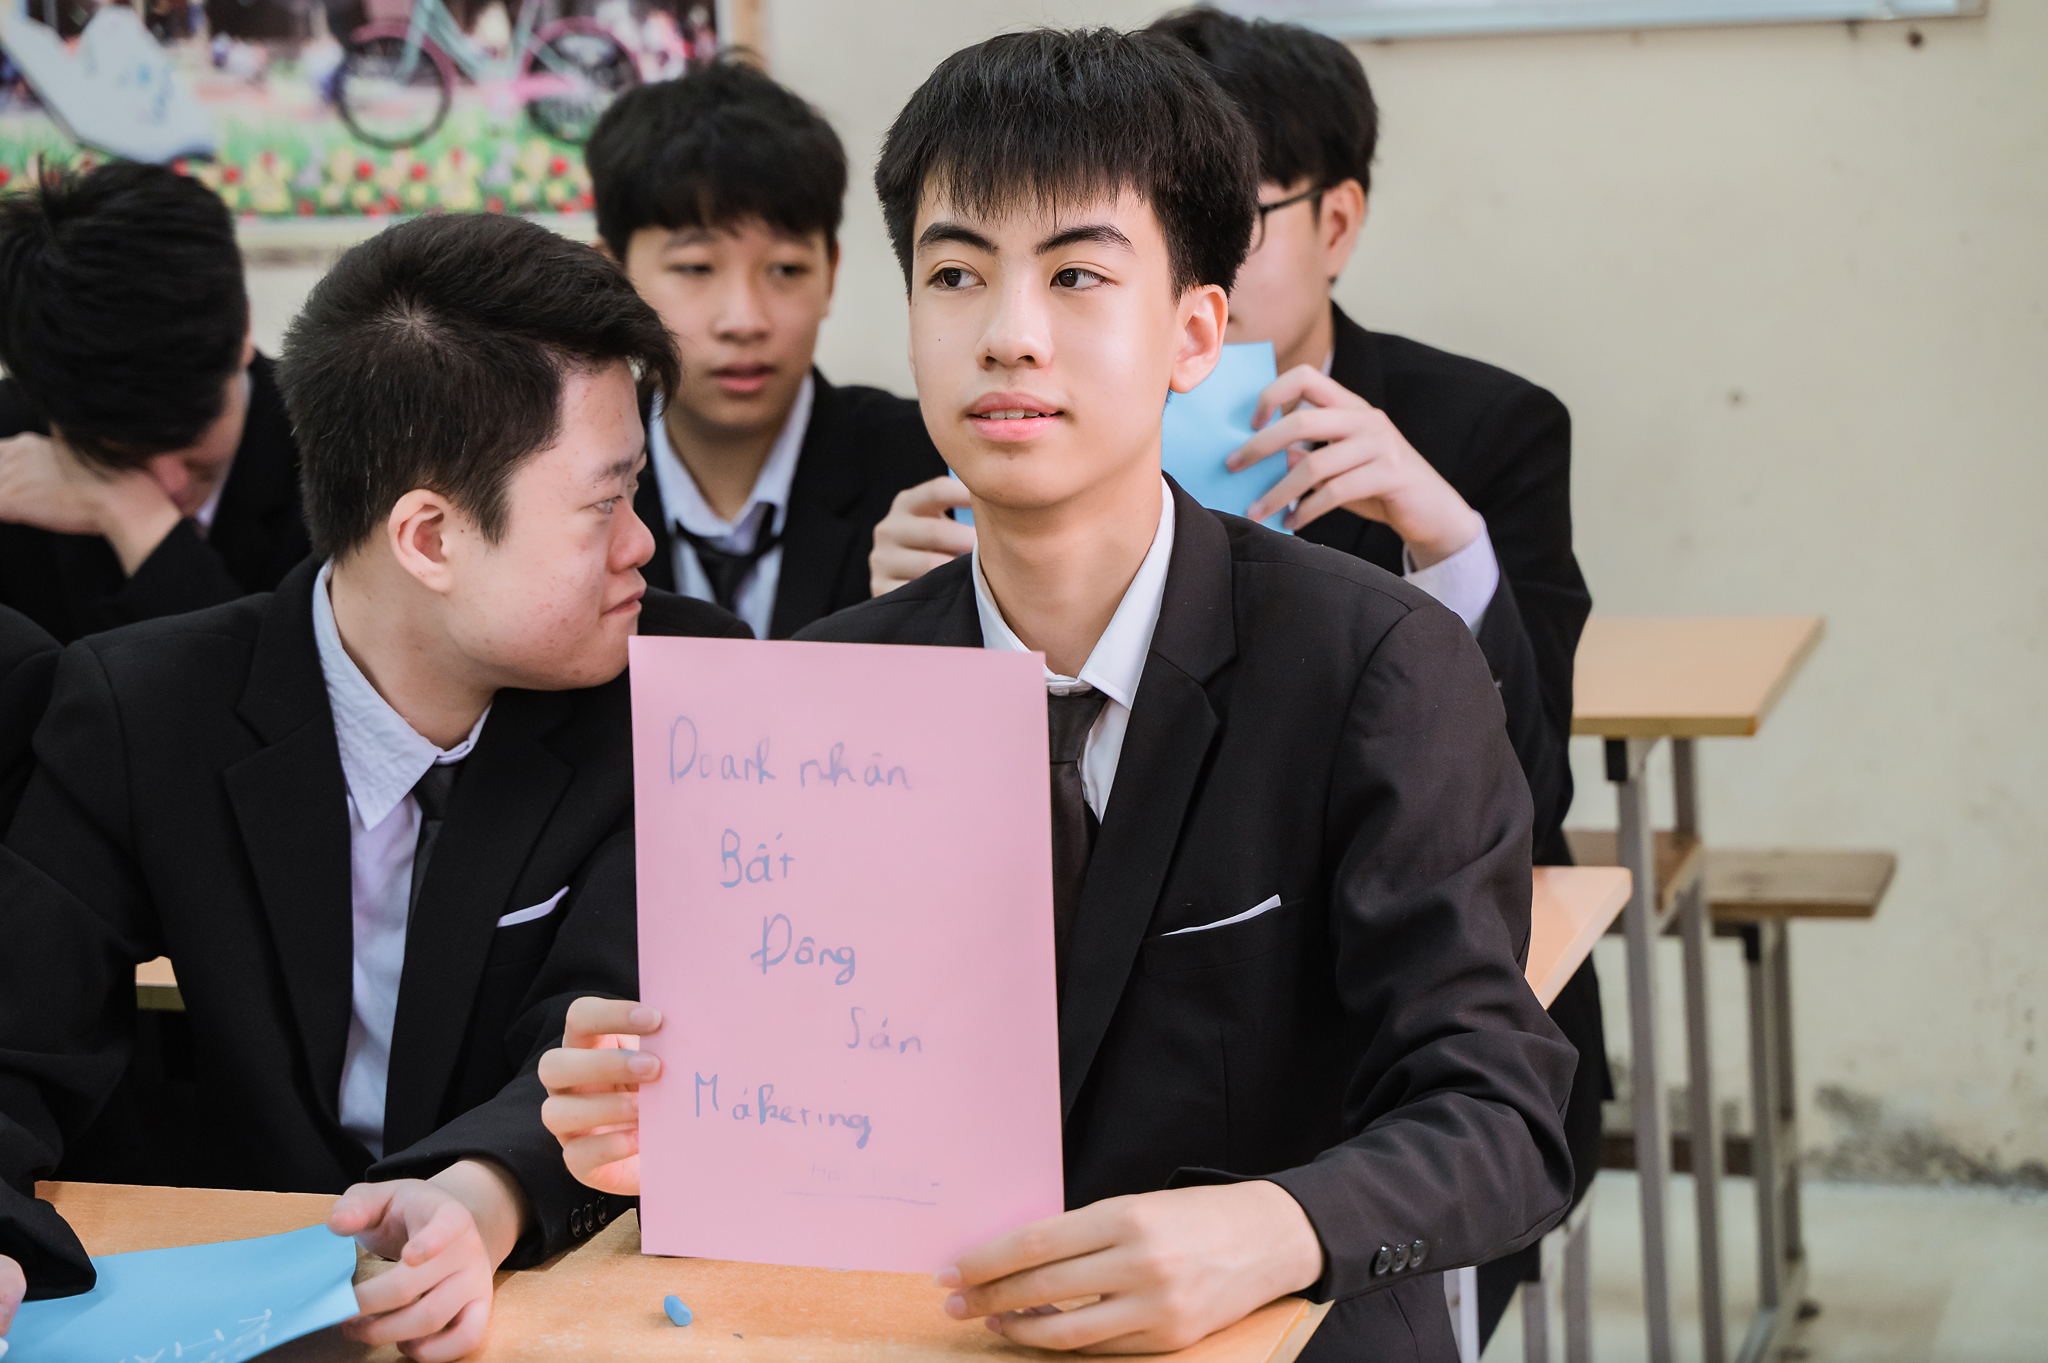 Doanh nhân
Bất
Động
Sản
Máketing